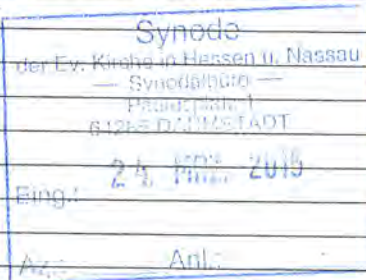 Synode
der Ev. Kirche in Hessen u. Nassau
— Synodalbüro —
Paulusplatz 1
DARMSTADT
24. MRZ. 2015
Eing.:
Az.: Anl.: